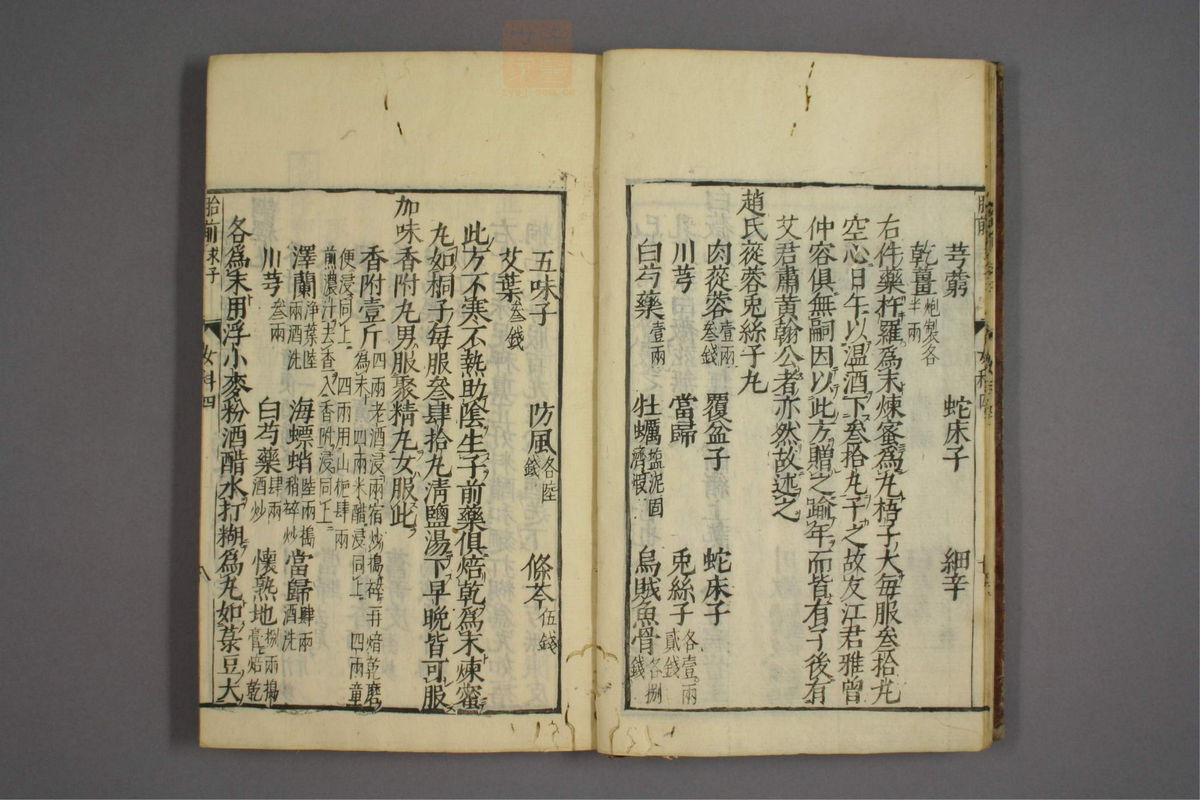 芎藭 蛇床子 細辛
乾薑炮製各半兩
右件藥杵羅爲末煉蜜爲丸梧子大每服叁拾丸
空心日午以温酒下叁拾丸予之故友江君雅曾
仲容俱無嗣因以此方贈之踰年而皆有子後有
艾君肅黄翰公者亦然故述之
趙氏蓯蓉兎絲子丸
肉蓯蓉壹兩叁錢 覆盆子 蛇床子
川芎 當歸 兎絲子各壹兩貳錢
白芍藥壹兩 牡蠣塩泥固濟煅 烏賊魚骨各捌錢
五味子 防風各陸錢 條芩伍錢
艾葉叁錢
此方不寒不熱助陰生子前藥俱焙乾爲末煉蜜
丸如桐子每服叁肆拾丸淸鹽湯下早晩皆可服
加味香附丸男服聚精丸女服此
香附壹斤四兩老酒浸兩宿炒搗碎再焙乾磨爲末 四兩米醋浸同上 四兩童便浸同上 四兩用山梔肆兩煎濃汁去查入香附浸同上
澤蘭浄葉陸兩酒洗 海螵蛸陸兩搗稍碎炒 當歸肆兩酒洗
川芎叁兩 白芍藥肆兩酒炒 懷熟地捌兩搗膏焙乾
各爲末用浮小麥粉酒醋水打糊爲丸如菉豆大
胎前求子 女科四 八